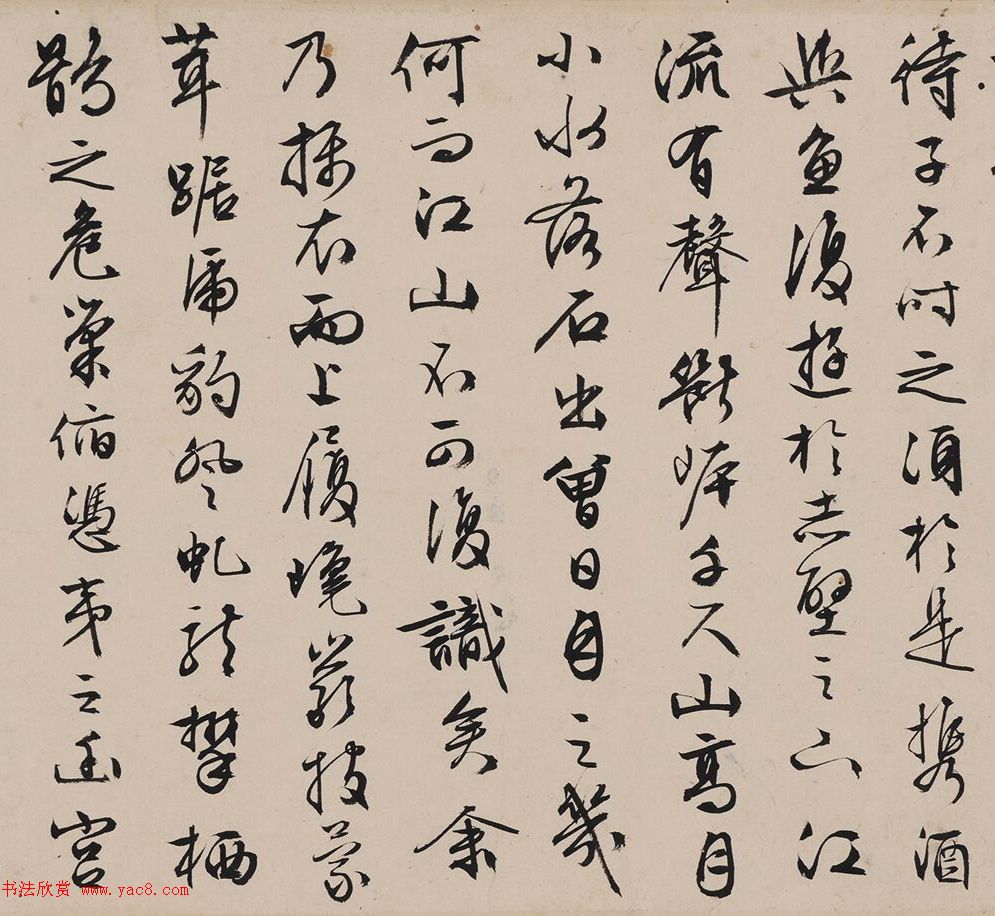 待子不時之須於是携酒
與魚復遊於赤壁之下江
流有聲斷岸千尺山高月
小水落石出曾日月之幾
何而江山不可復識矣余
乃攝衣而上履巉巖披蒙
茸踞虎豹登虬龍攀栖
鶻之危巢俯憑夷之幽宮
书法欣赏 www.yac8.com